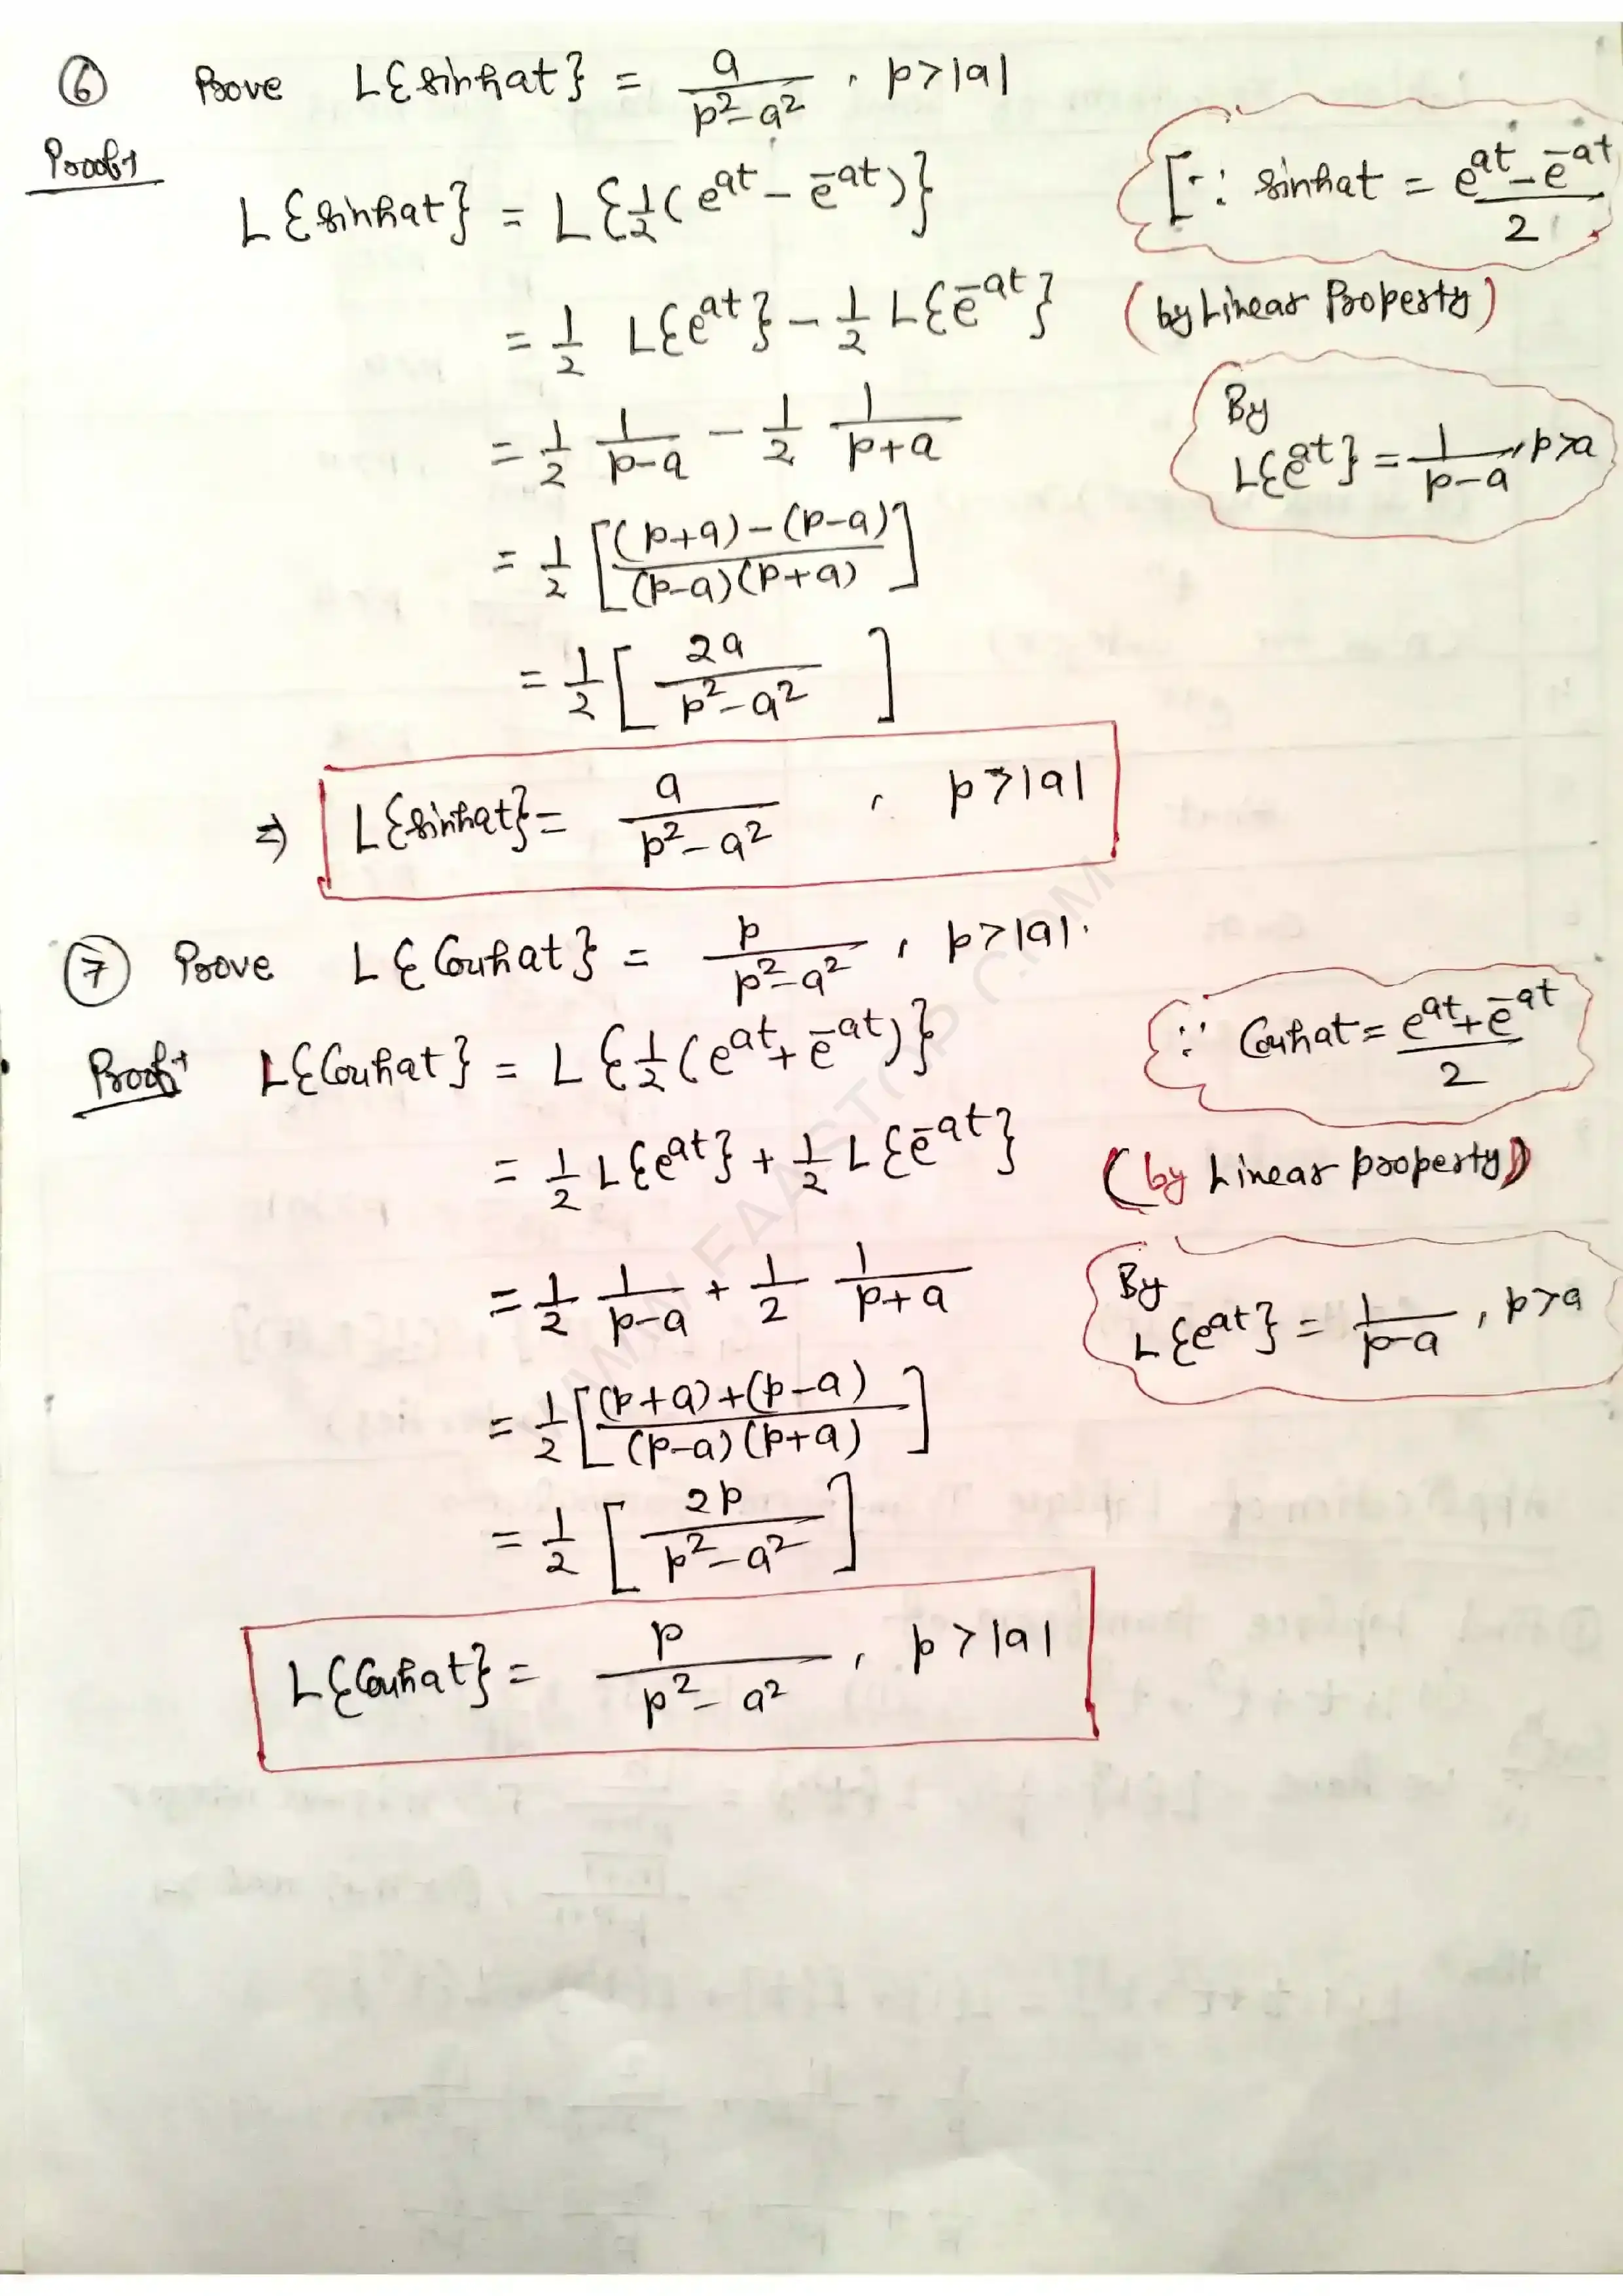 ⑥ Prove L{sinhat} = a/(p²-a²) , p>|a|
Proof→
L{sinhat} = L{½(e^at - e^-at)} [∵ sinhat = (e^at - e^-at)/2
= 1/2 L{e^at} - 1/2 L{e^-at} (by Linear Property)
= 1/2 1/(p-a) - 1/2 1/(p+a) By L{e^at} = 1/(p-a), p>a
= 1/2 [((p+a)-(p-a))/((p-a)(p+a))]
= 1/2 [2a/(p²-a²)]
⇒ L{sinhat} = a/(p²-a²) , p>|a|
⑦ Prove L{Coshat} = p/(p²-a²) , p>|a|.
Proof→ L{Coshat} = L{½(e^at + e^-at)} ∵ Coshat = (e^at + e^-at)/2
= 1/2 L{e^at} + 1/2 L{e^-at} (by Linear property)
= 1/2 1/(p-a) + 1/2 1/(p+a) By L{e^at} = 1/(p-a) , p>a
= 1/2 [((p+a)+(p-a))/((p-a)(p+a))]
= 1/2 [2p/(p²-a²)]
L{Coshat} = p/(p²-a²) , p>|a|